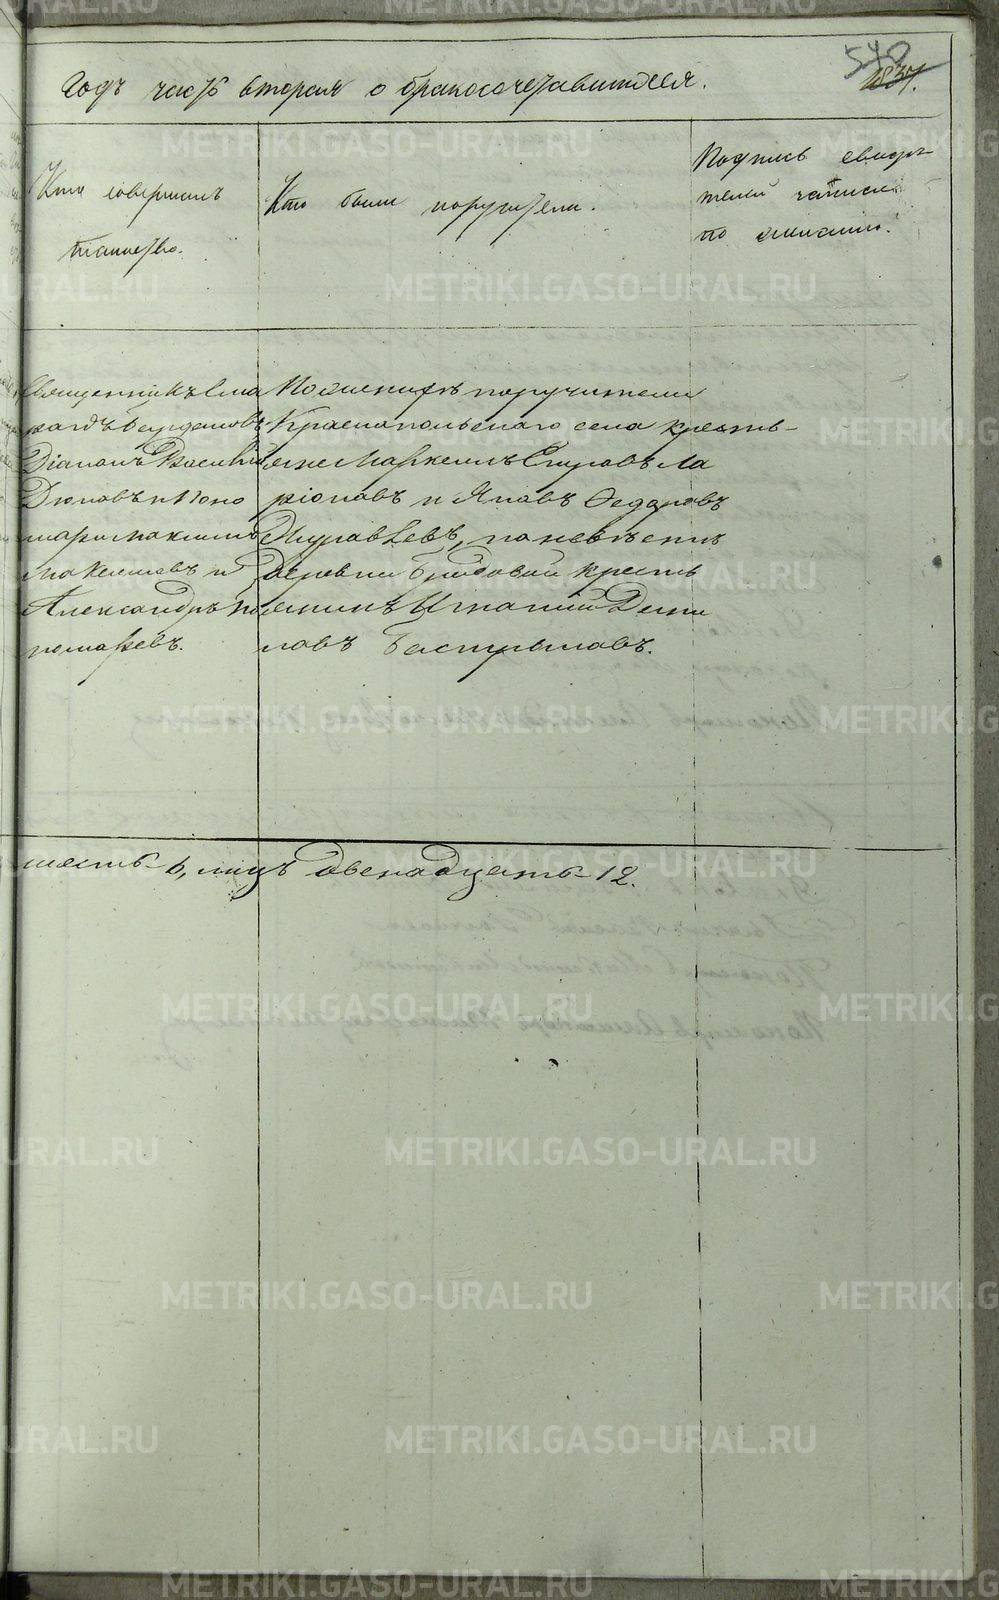 540
1837.
Годъ часть вторая о бракосочетавшихся.
Кто совершалъ
таинство.
Кто были поручители.
Подпись свидѣ-
телей записи
по желанію.
Священникъ
Діаконъ Василій
и Поно
марь Максимъ
и
Александръ По
номаревъ.
По женихѣ поручители
Краснопольскаго села кресть-
яне Маркеллъ Егоровъ Ла
ріоновъ и Яковъ Ѳедоровъ
Журавлевъ, по невѣстѣ
деревни Бродовой кресть
янинъ Игнатій Дани
ловъ Бастрыковъ.
шесть 6, лицъ двенадцать 12.
METRIKI.GASO-URAL.RU